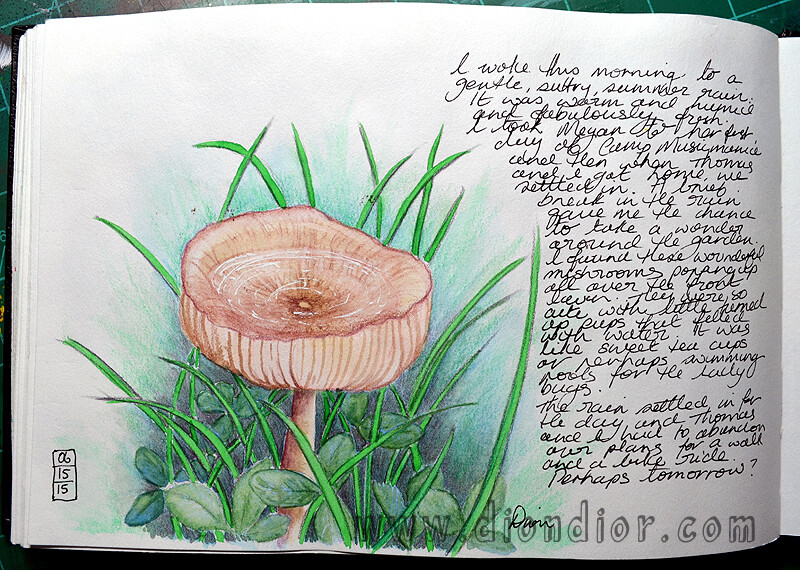 I woke this morning to a
gentle, sultry, summer rain.
It was warm and humid
and fabulously fresh.
I took Megan to her first
day of Camp Musicmania
and then when Thomas
and I got home, we
settled in. A brief
break in the rain
gave me the chance
to take a wonder
around the garden.
I found these wonderful
mushrooms popping up
all over the front
lawn. They were so
cute with little
up cups that filled
with water. It was
like sweet tea cups
or perhaps swimming
pools for the lady
bugs.
The rain settled in for
the day and Thomas
and I had to abandon
our plans for a walk
and a bike ride.
Perhaps tomorrow?
06
15
15
Dion
www.diondior.com